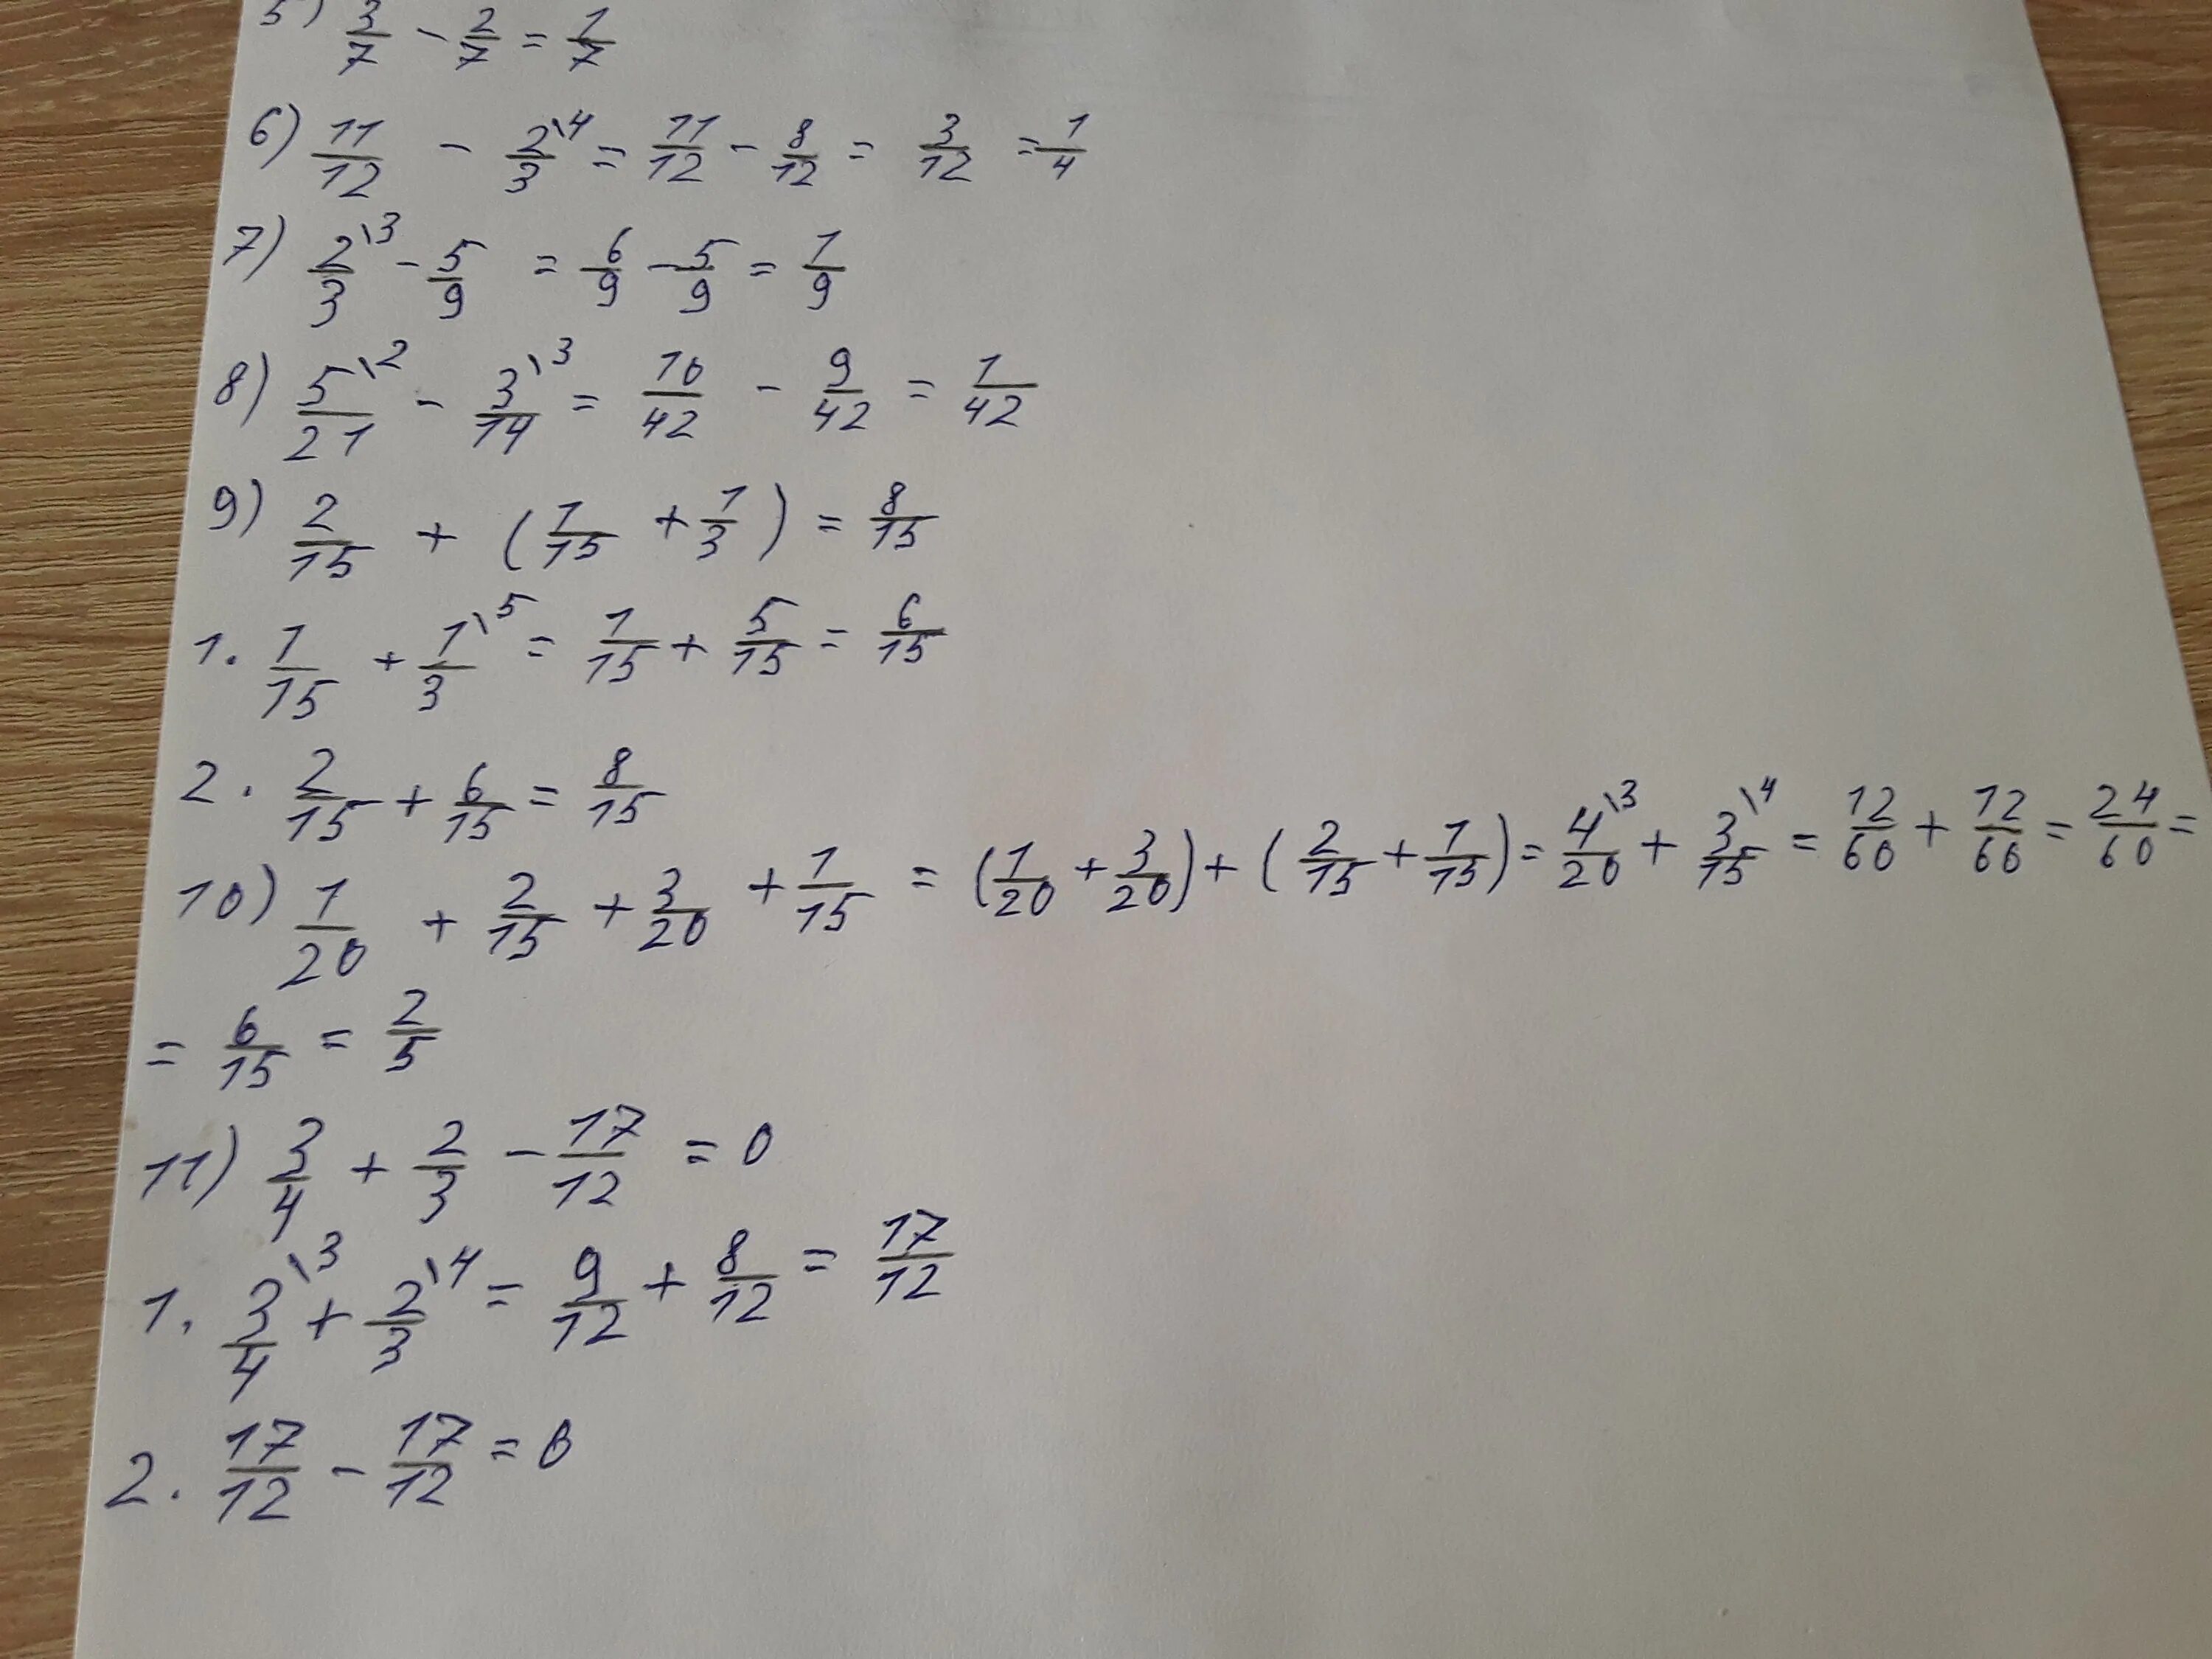 5) 3/7 - 2/7 = 1/7
6) 11/12 - 2\4/3 = 11/12 - 8/12 = 3/12 = 1/4
7) 2\3/3 - 5/9 = 6/9 - 5/9 = 1/9
8) 5\2/21 - 3\3/14 = 10/42 - 9/42 = 1/42
9) 2/15 + (1/15 + 1/3) = 8/15
1. 1/15 + 1\5/3 = 1/15 + 5/15 = 6/15
2. 2/15 + 6/15 = 8/15
10) 1/20 + 2/15 + 3/20 + 1/15 = (1/20 + 3/20) + (2/15 + 1/15) = 4\3/20 + 3\4/15 = 12/60 + 12/60 = 24/60 =
= 6/15 = 2/5
11) 3/4 + 2/3 - 17/12 = 0
1. 3\3/4 + 2\4/3 = 9/12 + 8/12 = 17/12
2. 17/12 - 17/12 = 0